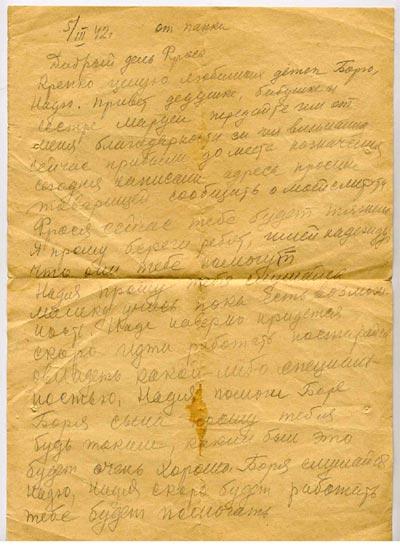 5/III 42 г. от папки
Добрый день Фрося
Крепко целую любимых деток Борю,
Надю. Привет дедушке, бабушке и
сестре Марусе передайте им от
меня благодарность за их внимание
сейчас прибыли до места назначения
сегодня написали адреса просим
товарищей сообщить о
Фрося сейчас тебе будет тяжело
Я прошу береги ребят, имей надежду
что они тебе помогут
Надя прошу тебя
учись пока есть возмож-
ность Надя наверно придется
скоро идти работать постарайся
овладеть какой либо специаль
ностью, Надя помоги Боре
Боря сына прошу тебя
будь таким, каким был это
будет очень хорошо. Боря слушайся
Надю, Надя скоро будет работать
тебе будет помогать